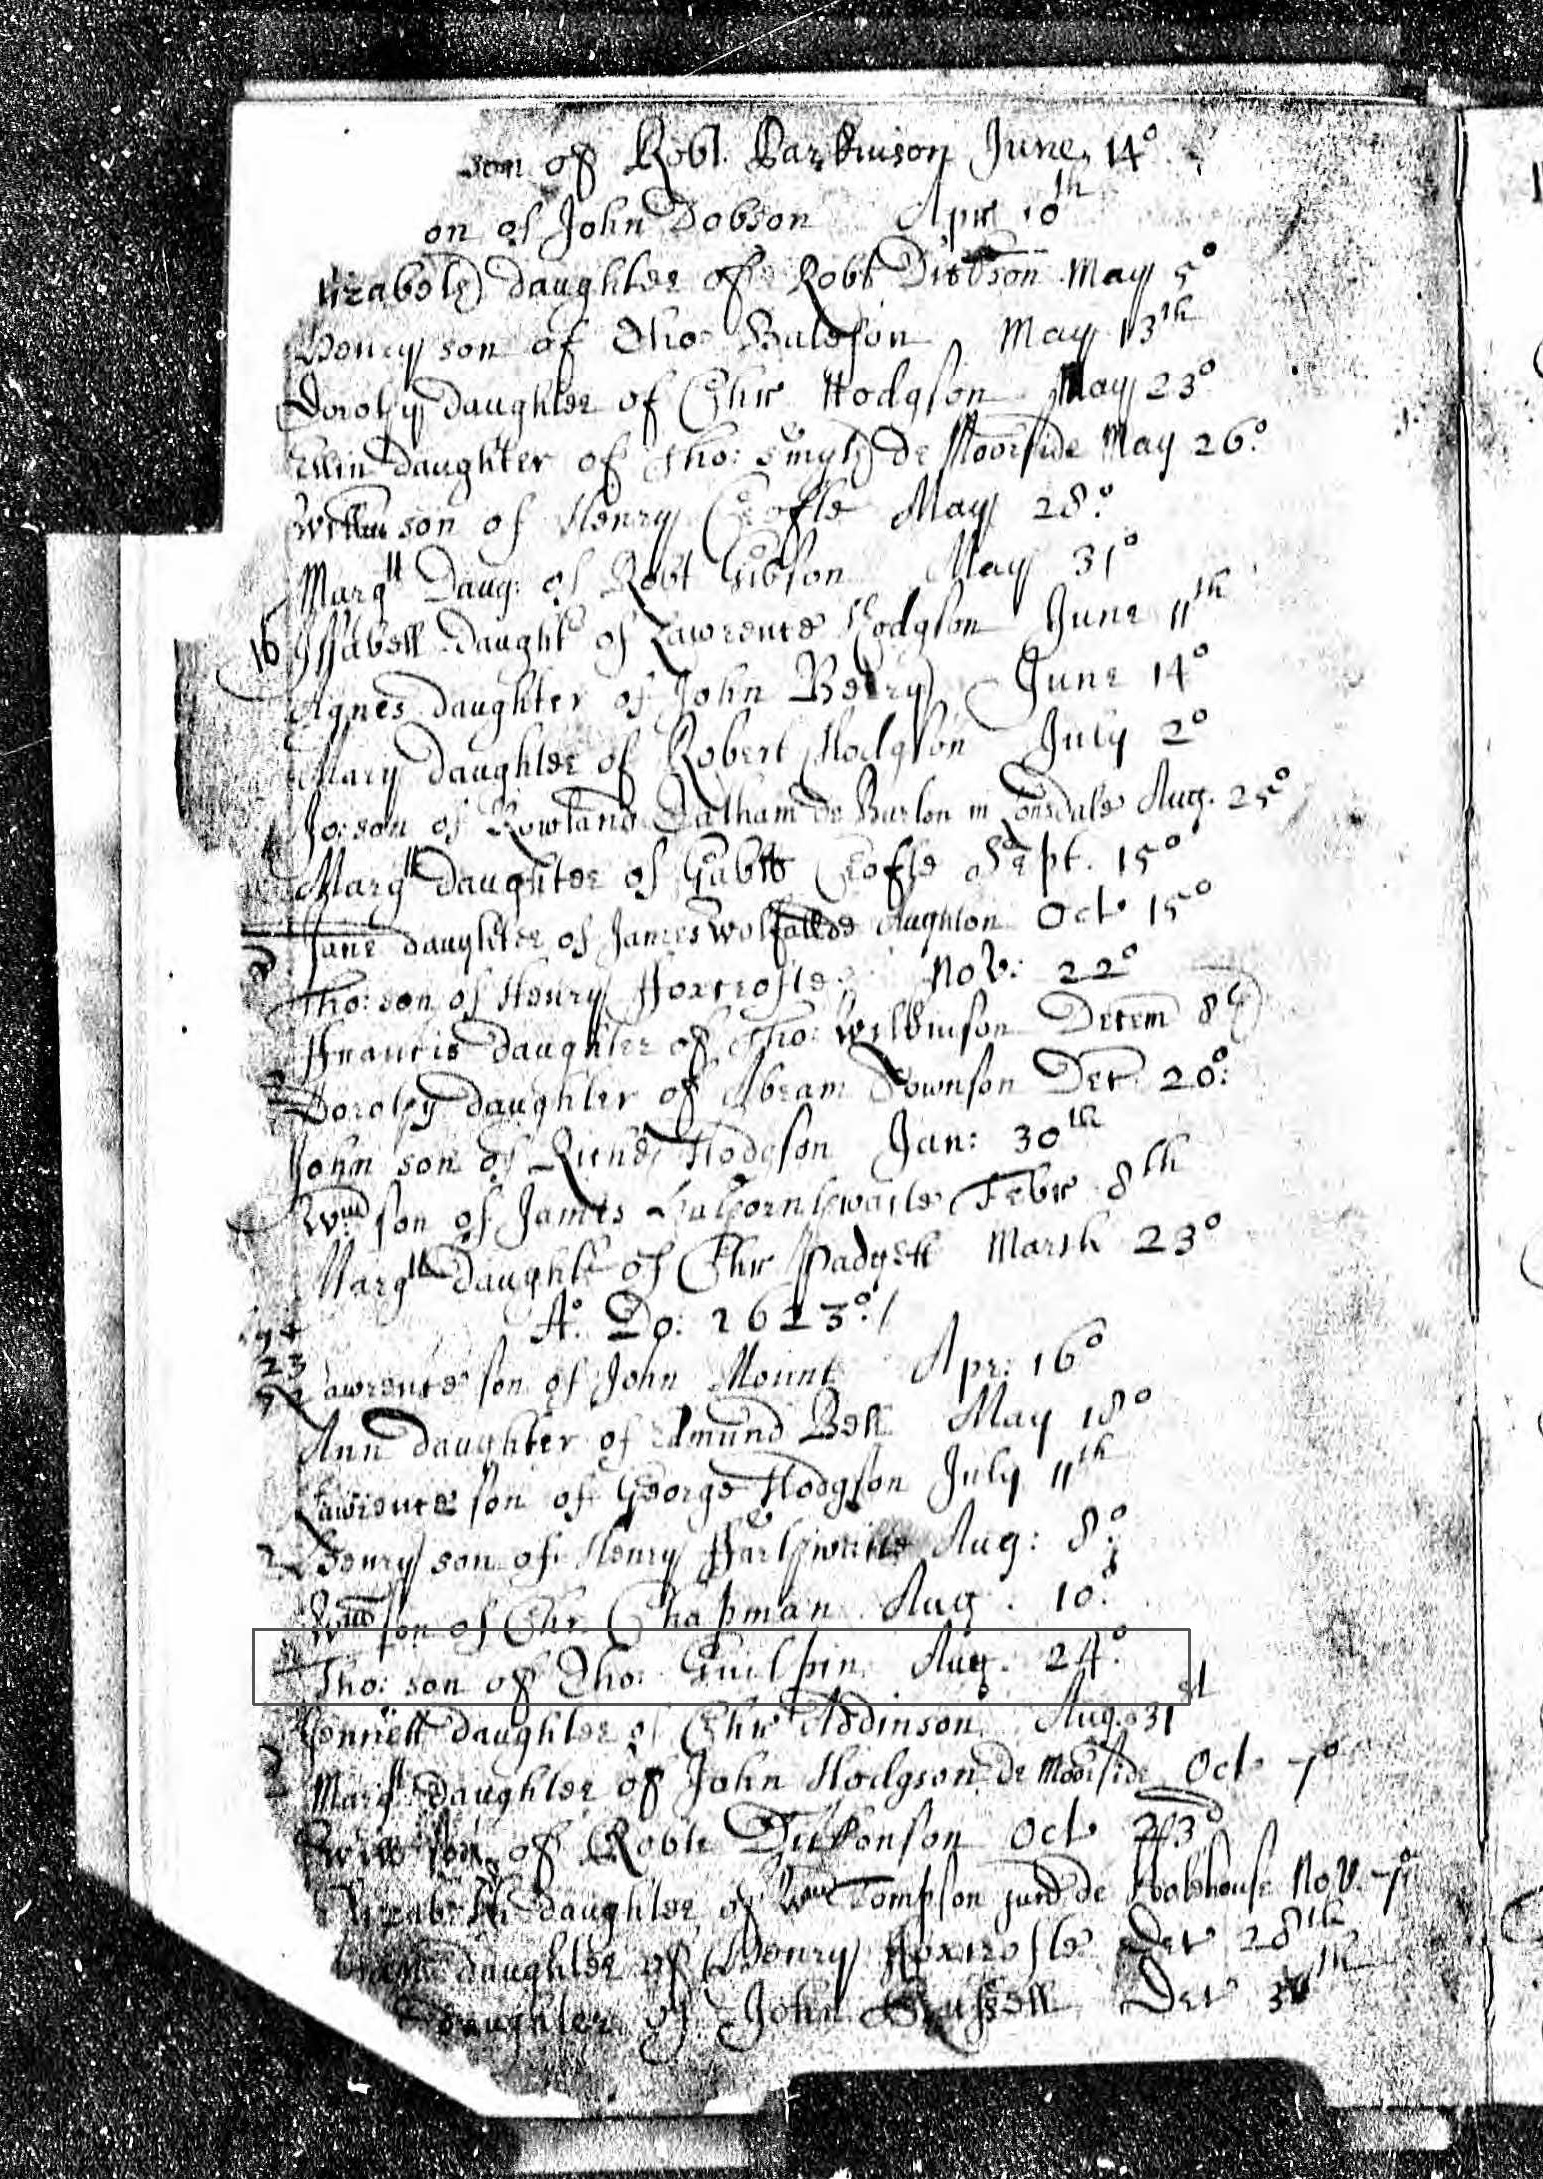 son of Robt. Parkinson June 14°
on of John Dobson Apr 10th
daughter of Robt May 5°
Henry son of Tho: Bateson May 13th
Dorothy daughter of Chr Hodgson May 23°
Ellin daughter of Tho: Smyth de Moorside May 26°
Willm son of Henry Crofte May 28°
Margtt Daug: of Robt Gibson May 31°
16 Issabell daught of Lawrence Hodgson June 11th
Agnes daughter of John Berry June 14°
Mary daughter of Robert Hodgson July 2°
Jo: son of Rowland Tatham de Burton in Lonsdale Aug. 25°
Margtt daughter of Gabll Crofte Sept. 15°
Jane daughter of James Wolfall de Aughton Oct 15°
Tho: son of Henry Foxcrofte Nov: 22°
Francis daughter of Tho: Wilkinson Decem 8th
Dorothy daughter of Abram Townson Dec 20°:
John son of Richd Hodgson Jan: 30th
Wm son of James Febr 8th
Margtt daught of Chr Padgett March 23°
A°. Do: 1623°:/
23
Lawrence son of John Mount Apr: 16°
Ann daughter of Edmund Bell May 18°
Lawrence son of George Hodgson July 11th
Henry son of Henry Aug: 8°
Wm son of Chr. Chapman Aug. 10°
Tho: son of Tho: Guilpin Aug. 24°
Jennett daughter of Chr Addinson Aug. 31st
Margtt daughter of John Hodgson de Moorside Oct 7°
son of Robte Dickonson Oct
Elizabeth daughter of Wm Tompson de Nov. 7°
daughter of Henry Foxcrofte Dec 28th
daughter of John Russell Dec